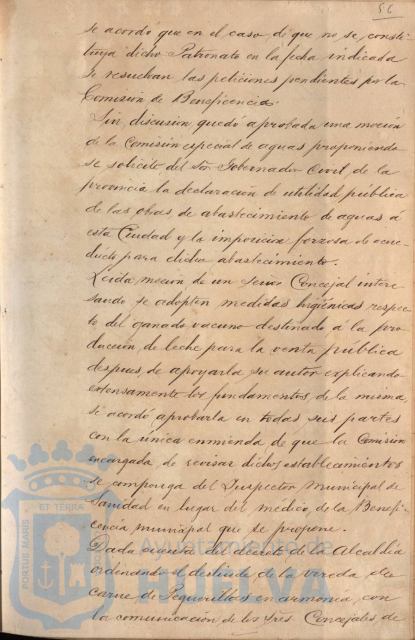 56
se acordó que en el caso de que no se consti-
tuya dicho Patronato en la fecha indicada
se resuelvan las peticiones pendientes por la
Comisión de Beneficencia.
Sin discusión quedó aprobada una moción
de la Comisión especial de aguas proponiendo
se solicite del Sor. Gobernador Civil de la
provincia la declaración de utilidad pública
de las obras de abastecimiento de aguas á
esta Ciudad y la imposición forzosa de acue-
ducto para dicho abastecimiento.
Leída moción de un Señor Concejal intere-
sando se adopten medidas higiénicas respec-
to del ganado vacuno destinado á la pro-
ducción de leche para la venta pública
despues de apoyarla su autor explicando
extensamente los fundamentos de la misma,
se acordó aprobarla en todas sus partes
con la única enmienda de que la Comisión
encargada de revisar dichos establecimientos
se componga del Inspector Municipal de
Sanidad en lugar del médico de la Benefi-
cencia municipal que se propone.
Dada cuenta del decreto de la Alcaldía
ordenando el deslinde de la vereda de
Carne de Peguerillos en armonía con
la comunicación de los Sres. Concejales de
PORTUS MARIS ET TERRÆ
Ayuntamiento de